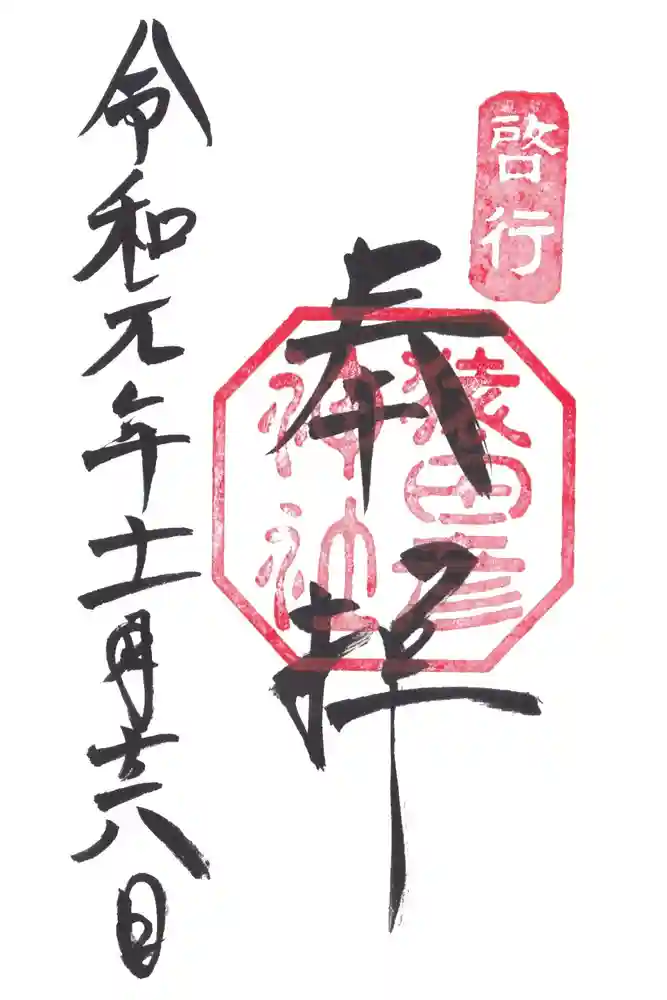 啓行
猿田彦
神社
奉拝
令和元年十一月廿八日